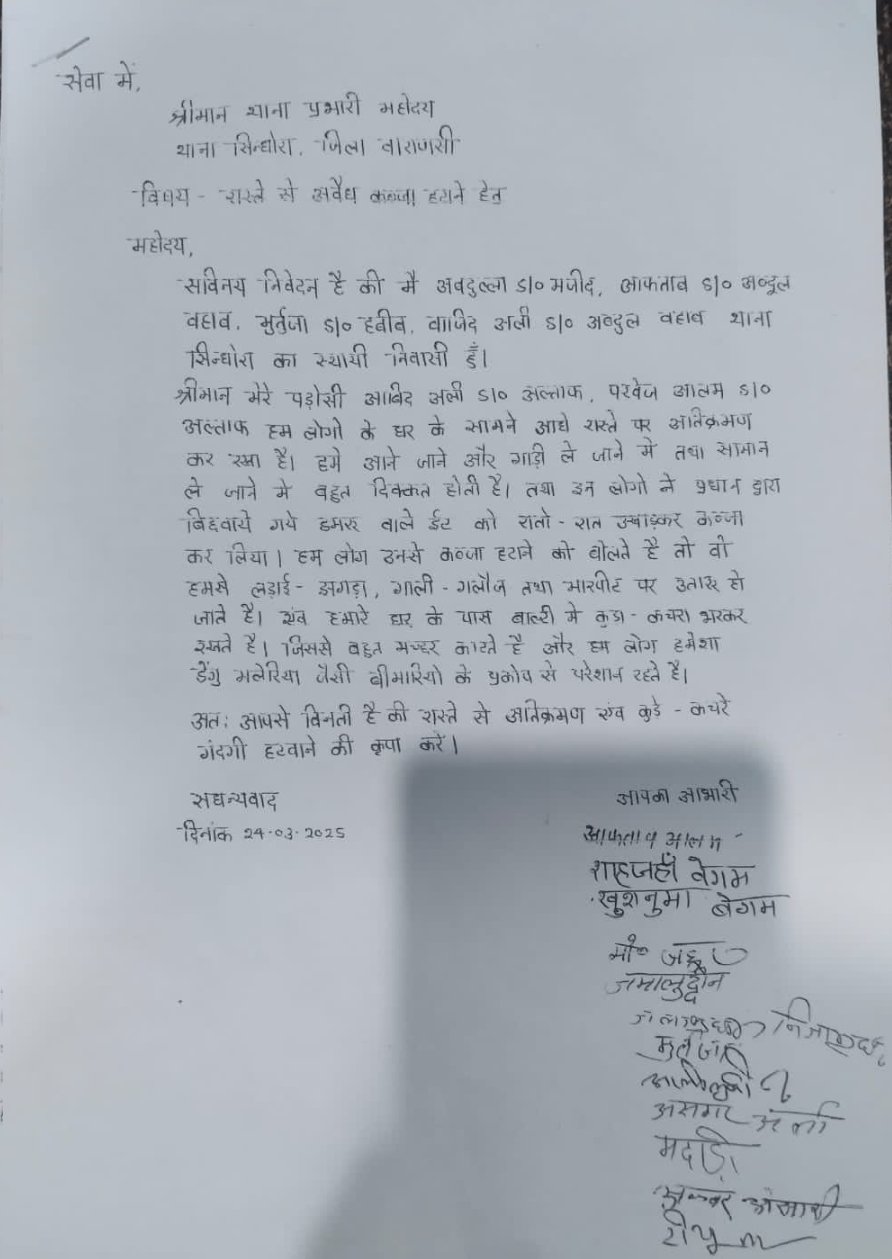 सेवा में,
श्रीमान थाना प्रभारी महोदय
थाना सिन्धोरा, जिला वाराणसी
विषय - रास्ते से अवैध कब्जा हटाने हेतु
महोदय,
सविनय निवेदन है की मै अबदुल्ला S/o मजीद, आफताब S/o अब्दुल
वहाब, मुर्तुजा S/o हबीब, वाजिद अली S/o अब्दुल वहाब थाना
सिन्धोरा का स्थायी निवासी हूँ।
श्रीमान मेरे पड़ोसी आबिद अली S/o अल्ताफ, परवेज आलम S/o
अल्ताफ हम लोगो के घर के सामने आधे रास्ते पर अतिक्रमण
कर रखा है। हमे आने जाने और गाड़ी ले जाने मे तथा सामान
ले जाने मे बहुत दिक्कत होती है। तथा इन लोगो ने प्रधान द्वारा
बिछवाये गये डमरू वाले ईट को रातो-रात उखाड़कर कब्जा
कर लिया। हम लोग उनसे कब्जा हटाने को बोलते है तो वो
हमसे लड़ाई-झगड़ा, गाली-गलौज तथा मारपीट पर उतारू हो
जाते है। एंव हमारे घर के पास बाल्टी मे कुडा-कचरा भरकर
रखते है। जिससे बहुत मच्छर काटते है और हम लोग हमेशा
डेंगु मलेरिया जैसी बीमारियो के प्रकोप से परेशान रहते है।
अत: आपसे विनती है की रास्ते से अतिक्रमण एंव कुडे-कचरे
गंदगी हटवाने की कृपा करे।
सधन्यवाद
दिनांक 24-03-2025
आपका आभारी
आफताब आलम
शाहजहाँ बेगम
खुशनुमा बेगम
मो०
जमालुद्दीन
मुर्तुजा
असगर अली
मदारी
अकबर अंसारी